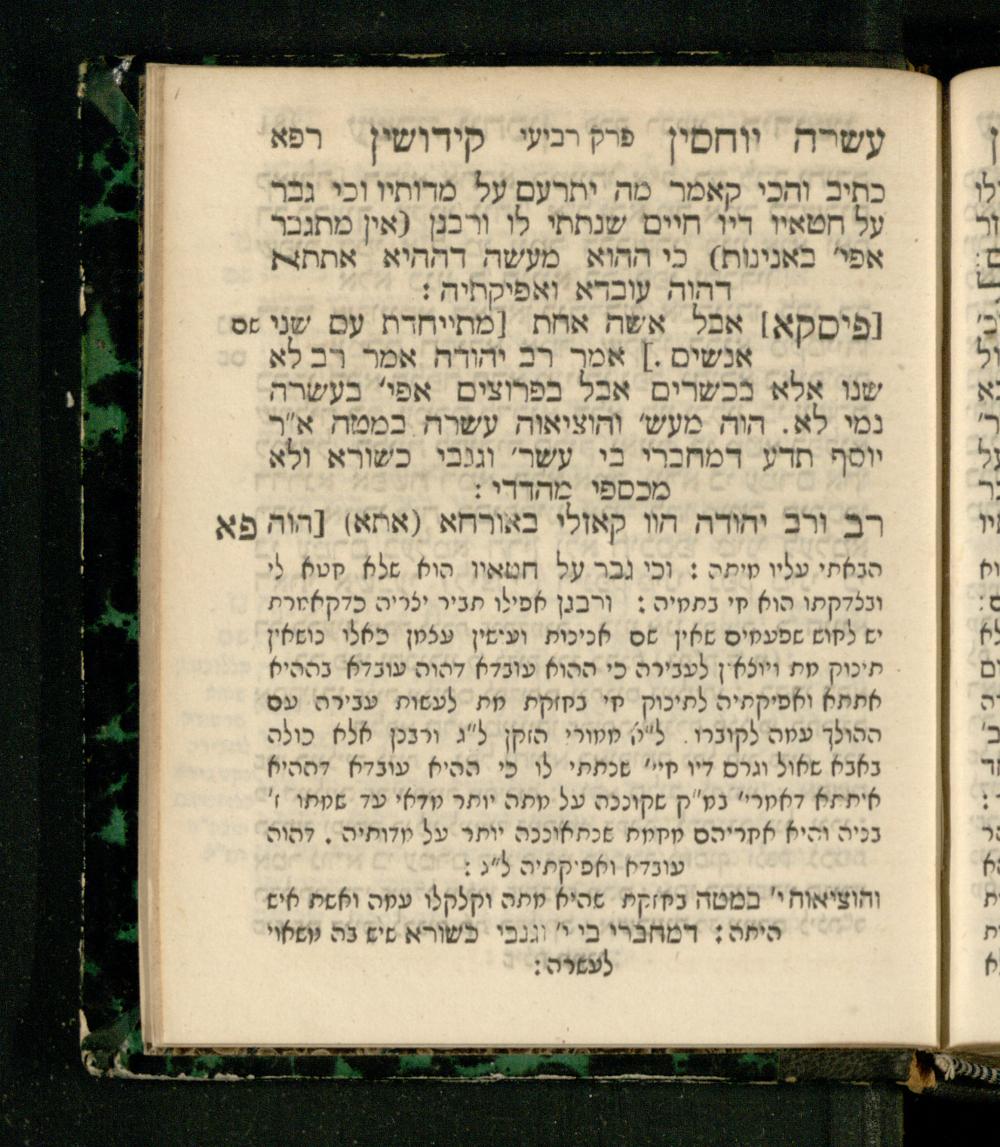 עשרה יוחסין פרק רביעי קידושין רפא
כתיב והכי קאמר מה יתרעם על מדותיו וכי גבר
על חטאיו דיו חיים שנתתי לו ורבנן (אין מתגבר
אפי' באנינות) כי ההוא מעשה דההיא אתתא
דהוה עובדא ואפיקתיה :
[פיסקא] אבל אשה אחת [מתייחדת עם שני שם
אנשים.] אמר רב יהודה אמר רב לא
שנו אלא בכשרים אבל בפרוצים אפי' בעשרה
נמי לא. הוה מעש' והוציאוה עשרה במטה א"ר
יוסף תדע דמחברי בי עשר' וגנבי כשורא ולא
מכספי מהדדי :
רב ורב יהודה הוו קאזלי באורחא (אתא) [הוה פא
הבאתי עליו מיתה : וכי גבר על חטאיו הוא שלא חטא לי
ובצדקתו הוא חי בתמיה : ורבנן אפילו תביר יצריה כדקאמרת
יש לחוש שפעמים שאין שם אנינות ועישין עצמן כאלו נושאין
תינוק מת ויוצאין לעבירה כי ההוא עובדא דהוה עובדא בההיא
אתתא ואפיקתיה לתינוק חי בחזקת מת לעשות עבירה עם
ההולך עמה לקוברו. ל"ה ממורי הזקן ל"ג ורבנן אלא כולה
באבא שאול וגרס דיו חיי' שנתתי לו כי ההיא עובדא דההיא
איתתא דאמרי' במ"ק שקוננה על מתה יותר מדאי עד שמתו ז'
בניה והיא אחריהם מחמת שנתאוננה יותר על מדותיה. דהוה
עובדא ואפיקתיה ל"ג :
והוציאוה י' במטה בחזקת שהיא מתה וקלקלו עמה ואשת איש
היתה : דמחברי בי י' וגנבי כשורא שיש בה משאוי
לעשרה :